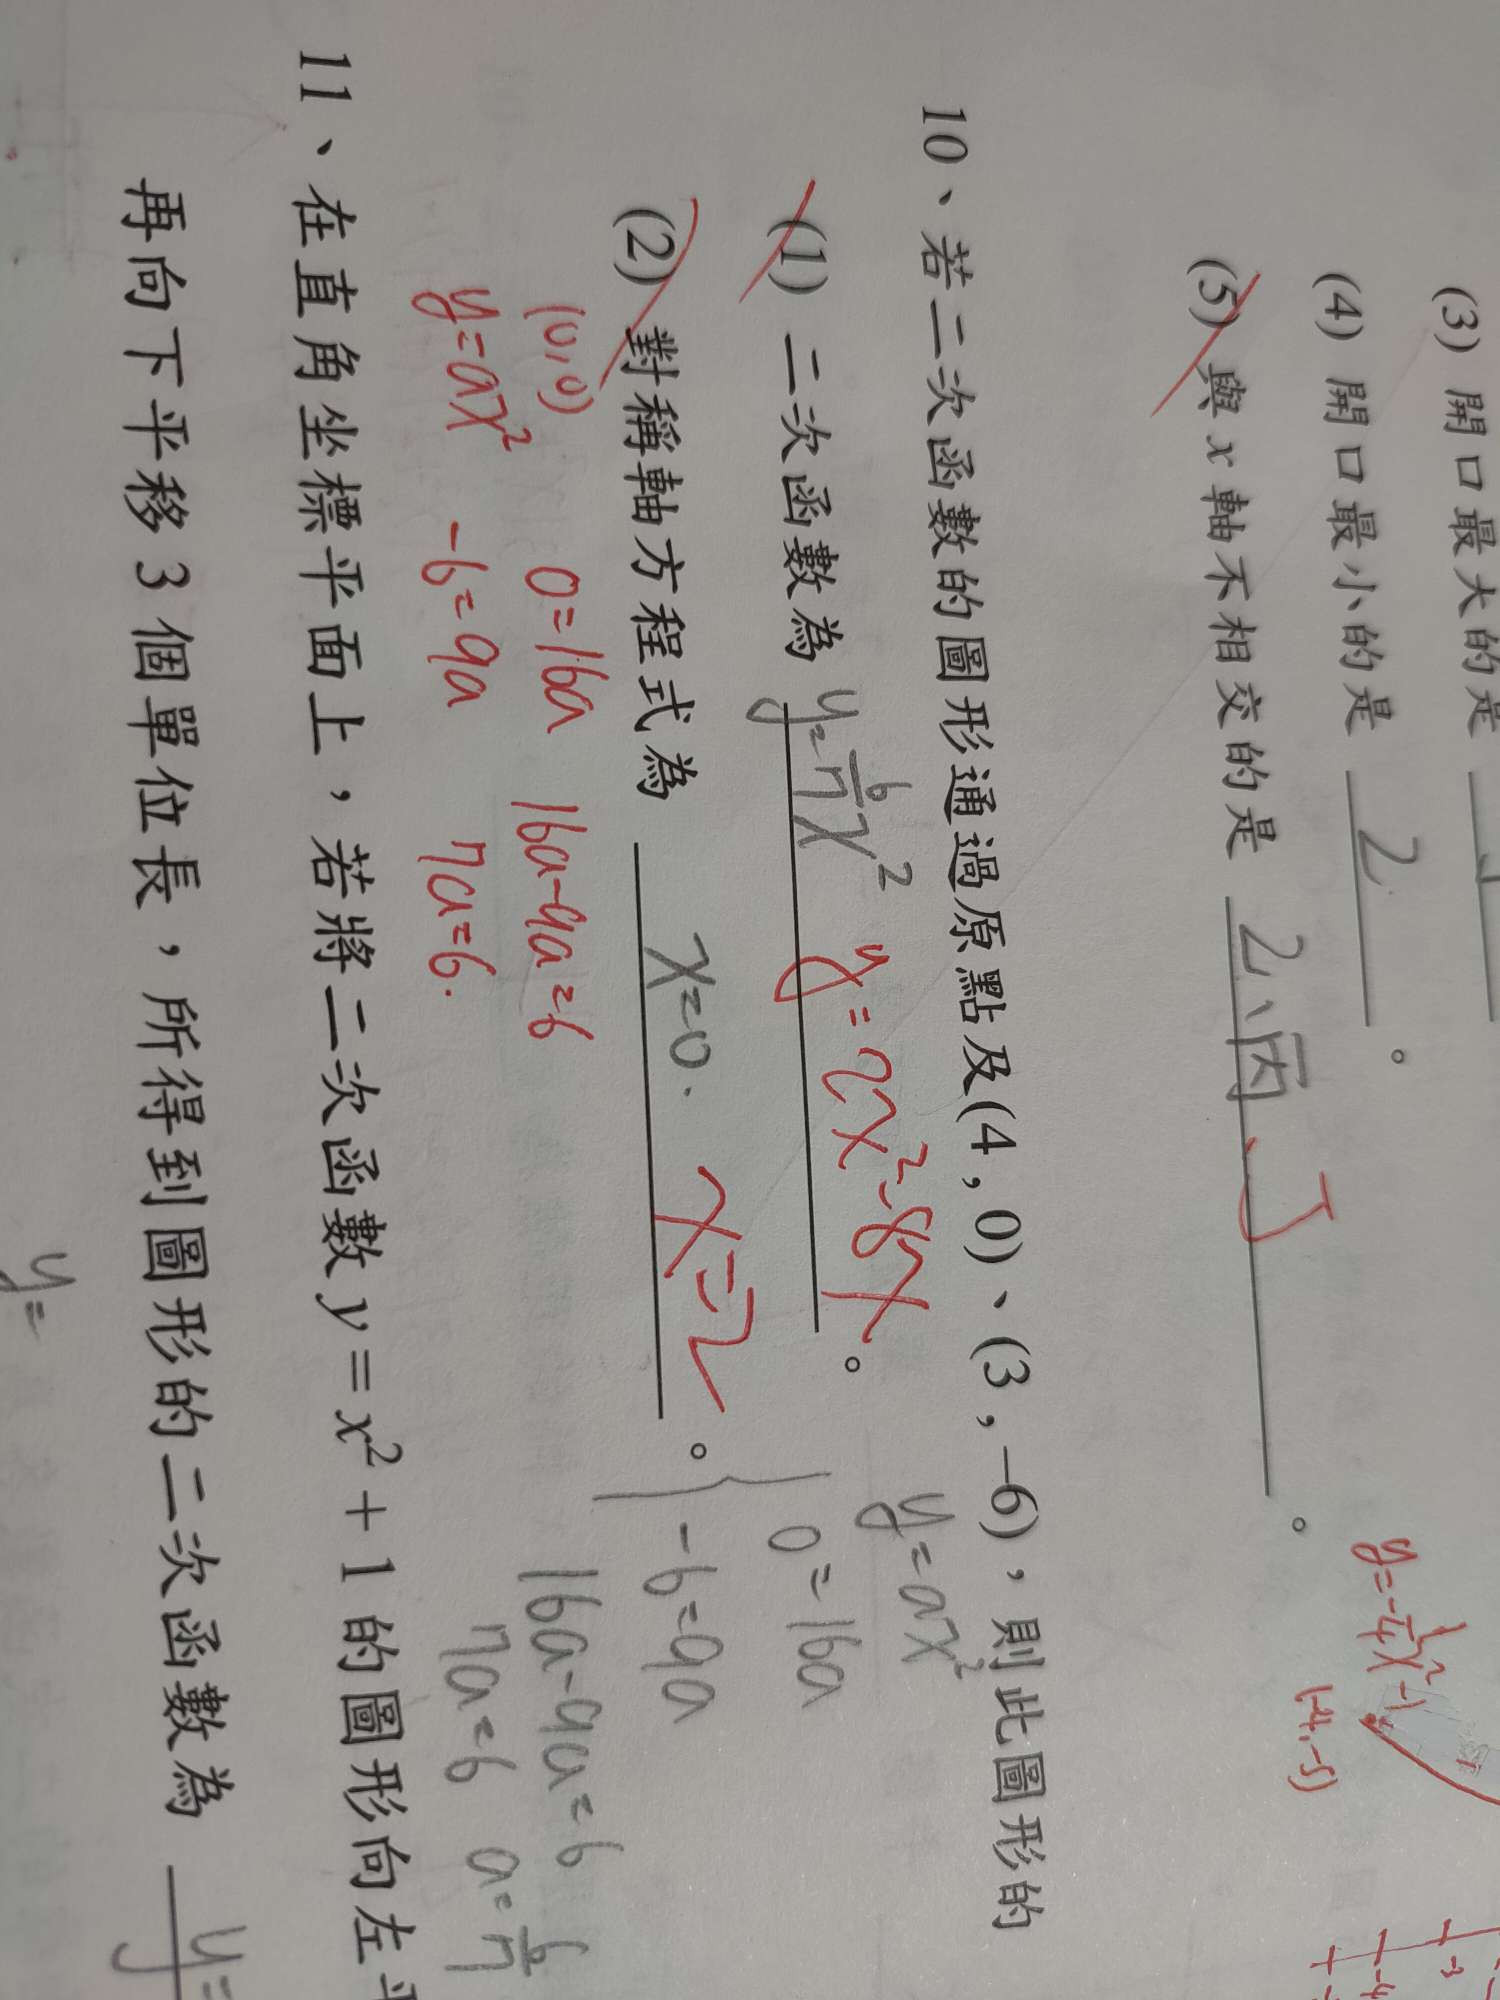 (3) 開口最大的是
(4) 開口最小的是 乙 。
(5) 與 x 軸不相交的是 乙、丙 丁 。
y=-1/4x²-1
(-4,-5)
-3
-4
10、若二次函數的圖形通過原點及(4 , 0)、(3 , –6)，則此圖形的
(1) 二次函數為 y=6/7x² y=2x²-8x 。
y=ax²
(2) 對稱軸方程式為 x=0. x=2 。
0=16a
-6=9a
16a-9a=6
7a=6 a=6/7
(0,0) 0=16a 16a-9a=6
y=ax² -6=9a 7a=6.
11、在直角坐標平面上，若將二次函數 y = x² + 1 的圖形向左平
再向下平移 3 個單位長，所得到圖形的二次函數為 y=
y=